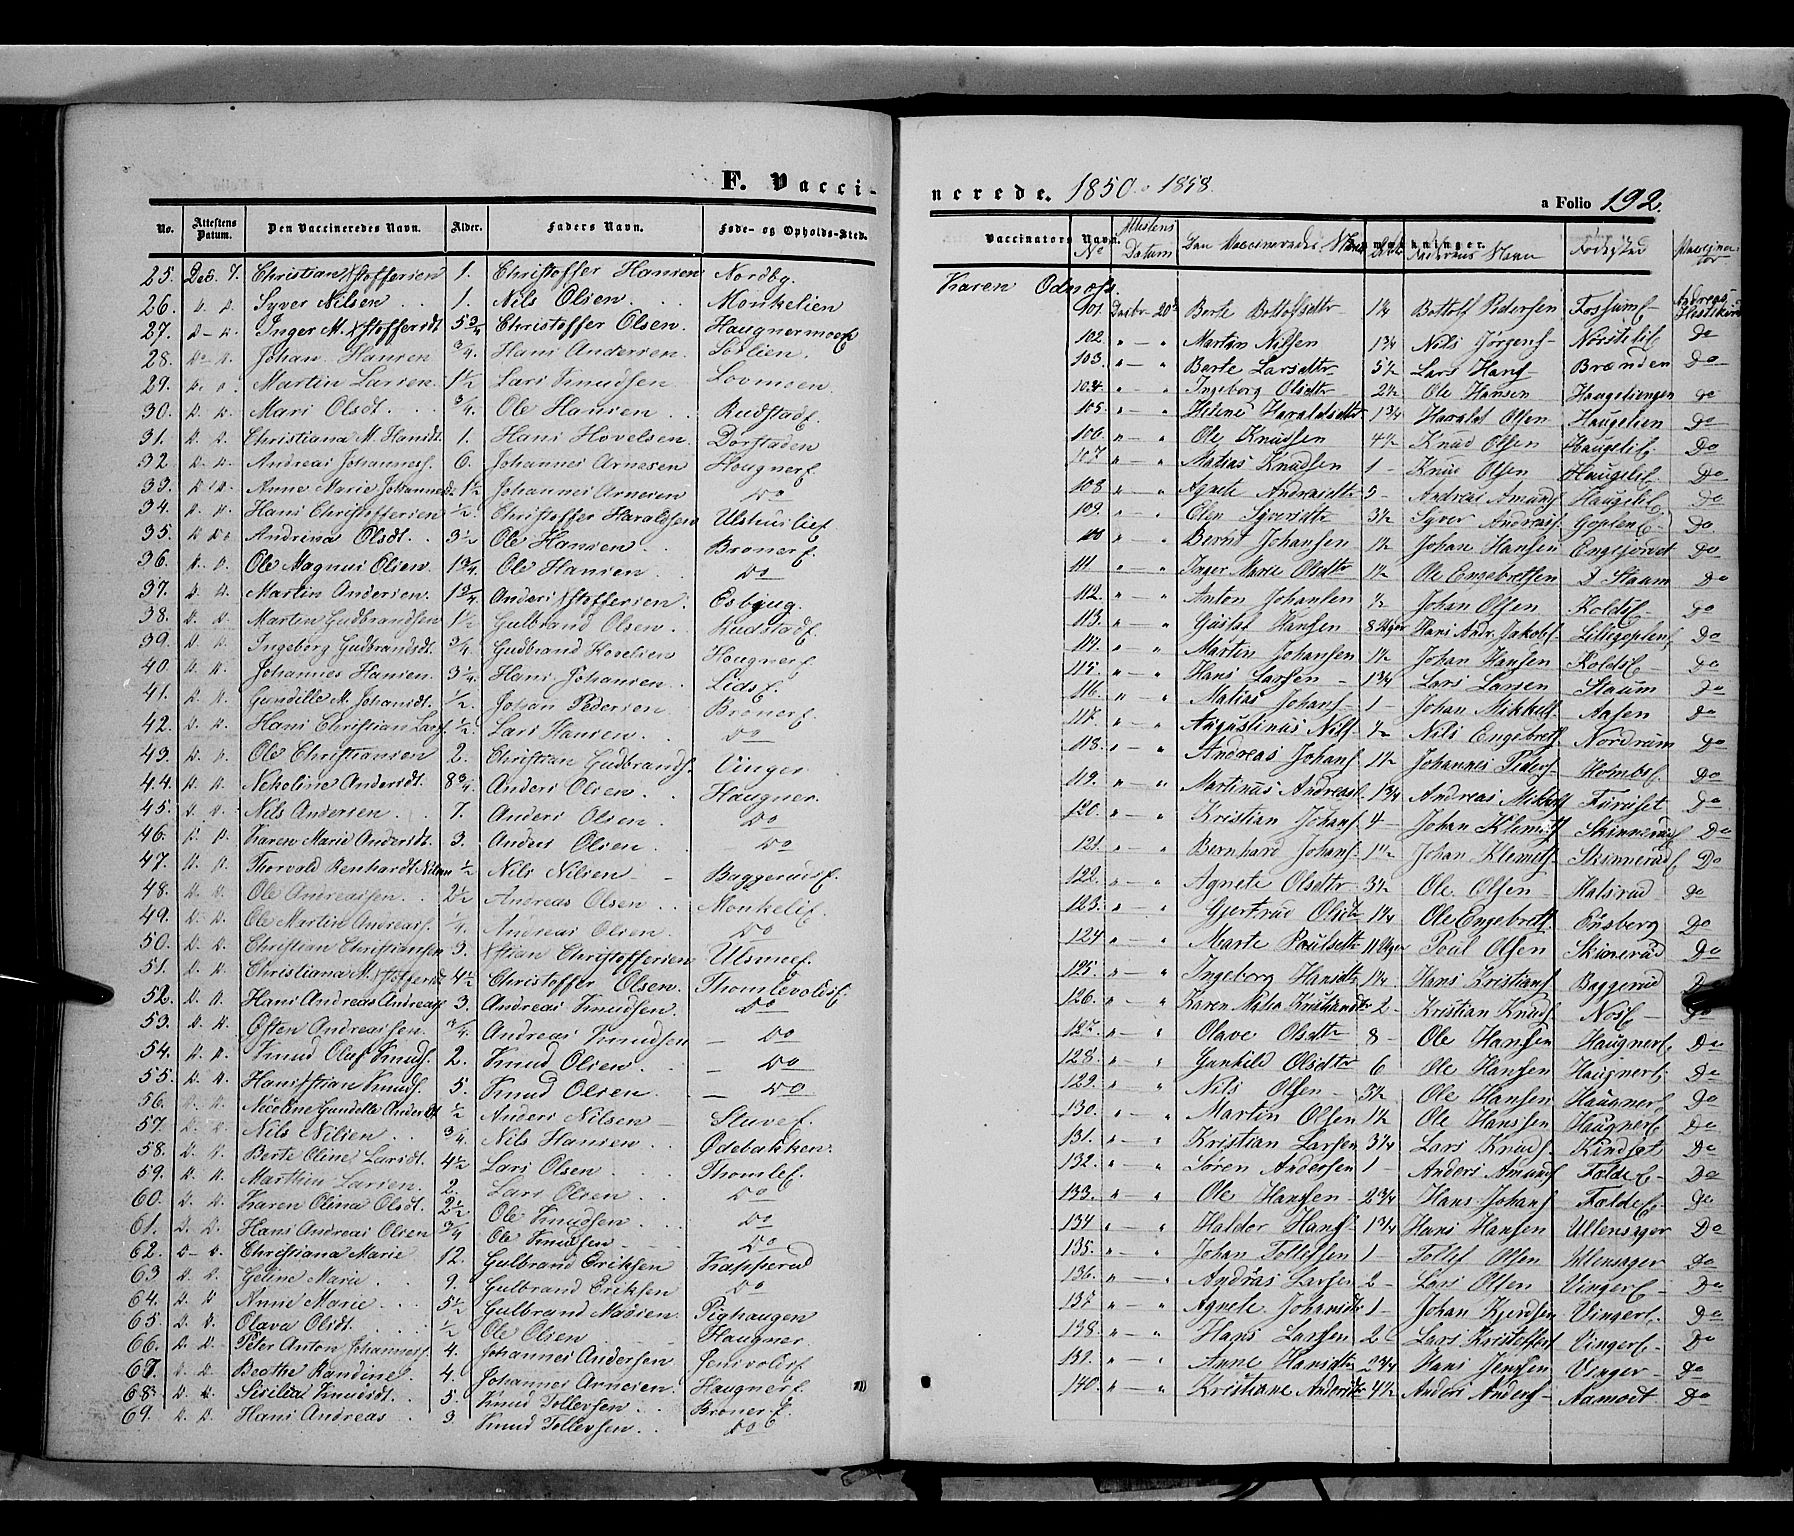 F. Vacci-
No. Attestens Datum. Den Vaccineredes Navn. Alder. Faders Navn. Føde- og Opholds-Sted.
25. Dec. 7. Christian Xstoffersen 1. Christoffer Hansen Nordbg.
26. " " Syver Nilsen 1. Nils Olsen. Monkelien
27. " " Inger M. Xstoffersdt. 5 3/4 Christoffer Olsen. Haugnermoen
28. Do " Johan Hansen 3/4. Hans Andersen. Sørlien.
29. " " Martin Larsen. 1 1/2 Lars Knudsen Lovmoen
30. " " Mari Olsdt. 3/4. Ole Hansen Rudstad.
31. " " Christiana M. Hansdt. 1. Hans Hovelsen. Dorstaden
32 " " Andreas Johannesf. 6. Johannes Arnesen Haugner.
33. " " Anne Marie Johannesd. 1 1/2 Johannes Arnesen Do
34. " " Hans Christoffersen 1/2. Christoffer Haraldsen Ulshuslief
35. " Do Andrina Olsdt. 3 1/2 Ole Hansen Broner.
36. " " Ole Magnus Olsen. 1 3/4. Ole Hansen Do
37. " " Martin Andersen. 1 3/4. Anders Xstoffersen. Esbjug.
38. " " Martin Gudbrandsen 1 1/2 Gulbrand Olsen. Rudstad.
39. " " Ingeborg Gudbrandsdt. 3/4. Gudbrand Hovelsen Haugner.
40 " " Johannes Hansen 3 1/4. Hans Johansen Lids.
41. " " Gundille M. Johansdt. 1/2. Johan Pedersen Broner.
42. " " Hans Christian Larsf. 1/2. Lars Hansen. Do
43. " " Ole Christiansen 2. Christian Gudbrandsf. Vinger
44. " " Nekoline Andersdt. 8 3/4. Anders Olsen. Haugner.
45. " " Nils Andersen 7. Anders Olsen Do
46. " " Karen Marie Andersdt. 3. Anders Olsen Do
47. " " Thorvald Benhardt Nilsen 1/2 Nils Nilsen Baggerud.
48. " " Ole Andreassen. 2 1/2 Andreas Olsen Monkeli.
49. " " Ole Martin Andreasf. 1/4. Andreas Olsen Do
50. " " Christian Christiansen 3. Xstian Christoffersen
51. " " Christiana M. Xstoffersdt. 4 1/2 Christoffer Olsen. Thomlevolds.
52. " " Hans Andreas Andreasf. 3. Andreas Knudsen Do
53. " " Østen Andreassen. 3/4. Andreas Knudsen Do
54. " " Knud Olaf Knudsf. 2. Knud Olsen Do
55. " " Hans Xstian Knudsf. 5. Knud Olsen Do
56. " " Nicoline Gundelle Andersdt. 1/2 Anders Nilsen Stuve.
57. " " Nils Nilsen 3/4. Nils Hansen Ødebakken.
58. " " Berte Oline Larsdt. 4 1/2 Lars Olsen Thomle.
59. " " Marthin Larsen. 2. Lars Olsen Do
60. " " Karen Olina Olsdt. 2 1/2 Ole Knudsen Do
61. " " Hans Andreas Olsen 3/4 Ole Knudsen Do
62. " " Christiana Marie 12. Gulbrand Eriksen Kapperud
63 " " Geline Marie 9. Gulbrand Eriksen Do
64. " " Anne Marie 5 1/2 Gulbrand Madsen Pighaugen
65. " " Olava Olsdt. 1/2 Ole Olsen Haugner
66. " " Peter Anton Johannesf. 4. Johannes Andersen Jensvolds.
67. " " Beathe Randine 4. Johannes Arnesen Haugner.
68. " " Sisilia Knudsdt. 5. Knud Tollevsen Broner.
69. " " Hans Andreas 3 Knud Tollevsen Do
nerede. 1850. 1858. a Folio 192.
Vaccinators Navn. Anmærkninger.
No Attestens Datum Den Vaccineredes Navn Alder Faderens Navn Fødested Vaccinator
Karen Odnes.
101. Dectbr 20de Berte Bottolfsdtr 1 1/4 Bottolf Pedersen Fossum Andreas
102. " " Martin Nilsen 1 3/4 Nils Jørgens Nørsteli Do
103. " " Berte Larsdtr 5 1/2 Lars Hans Brænden Do
104. " " Ingeborg Olsdtr 2 1/2 Ole Hansen Haugeliengen Do
105. " " Helene Haraldsdtr 1 3/4 Harald Olsen Haugelien Do
106. " " Ole Knudsen 4 1/2 Knud Olsen Haugeli. Do
107. " " Matias Knudsen 1 Knud Olsen Haugeli. Do
108. " " Agnete Andreasdtr 5 Andreas Amunds Haugeli. Do
109. " " Olea Syversdtr 3 1/2 Syver Andreasf. Goplen. Do
110 " " Bernt Johansen 1 1/2 Johan Hansen Engejordet Do
111 " " Inger Marie Olsdtr 1 1/2 Ole Engebretsen Staum Do
112. " " Anton Johansen 1/2 Johan Olsen Kolds. Do
113. " " Gustav Hansen 8 Uger Hans Andr. Jakobs. Lillegoplen Do
114. " " Martin Johansen 1 1/2 Johan Hansen Kolds. Do
115. " " Hans Larsen 1 3/4 Lars Larsen Staum Do
116. " " Matias Johans 1 Johan Mikkels. Aasen Do
117. " " Augustinus Nils 1/2 Nils Engebrets. Nordrum Do
118. " " Andreas Johans 1 1/2 Johannes Peders. Do
119. " " Martinus Andreas. 1 3/4 Andreas Mikkels Furuset Do
120. " " Kristian Johans 4 Johan Klemets Skinnerud Do
121. " " Bernhard Johans 1 1/2 Johan Klemets Skinnerud Do
122. " " Agnete Olsdtr 3 1/2 Ole Olsen Halsrud Do
123. " " Gjertrud Olsdtr 1 1/4 Ole Engebrets. Onsberg Do
124 " " Marte Poulsdtr 11 Uger Poul Olsen Skinerud Do
125. " " Ingeborg Hansdtr 1 1/4 Hans Kristians Baggerud Do
126. " " Karen Matea Kristiansdtr 2 Kristian Knuds Nos Do
127. " " Olave Olsdtr 8 Ole Hansen Haugner. Do
128. " " Gunhild Olsdtr 6 Ole Hansen Haugner. Do
129. " " Nils Olsen 3 1/2 Ole Hansen Haugner. Do
130. " " Martin Olsen 1 1/2 Ole Hansen Haugner. Do
131. " " Kristian Larsen 3 1/4 Lars Knuds. Kindset Do
132. " " Søren Andersen 1 Anders Amunds Folde. Do
133. " " Ole Hansen 2 3/4 Hans Johans Folde. Do
134 " " Haldor Hans 1 3/4 Hans Hansen Ullensager Do
135. " " Johan Tollefsen 1 Tollef Olsen Ulensager Do
136. " " Andreas Larsen 2 Lars Olsen Vinger. Do
137 " " Agnete Johansdtr 1 Johan Kjersten Vinger. Do
138. " " Hans Larsen 2 Lars Kristoffers Vinger. Do
139. " " Anne Hansdtr 2 3/4 Hans Jensen Vinger Do
140. " " Kristiane Andersdtr 4 1/2 Anders Anders Aamodt. Do